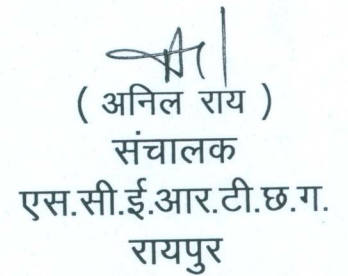 ( अनिल राय )
संचालक
एस.सी.ई.आर.टी.छ.ग.
रायपुर